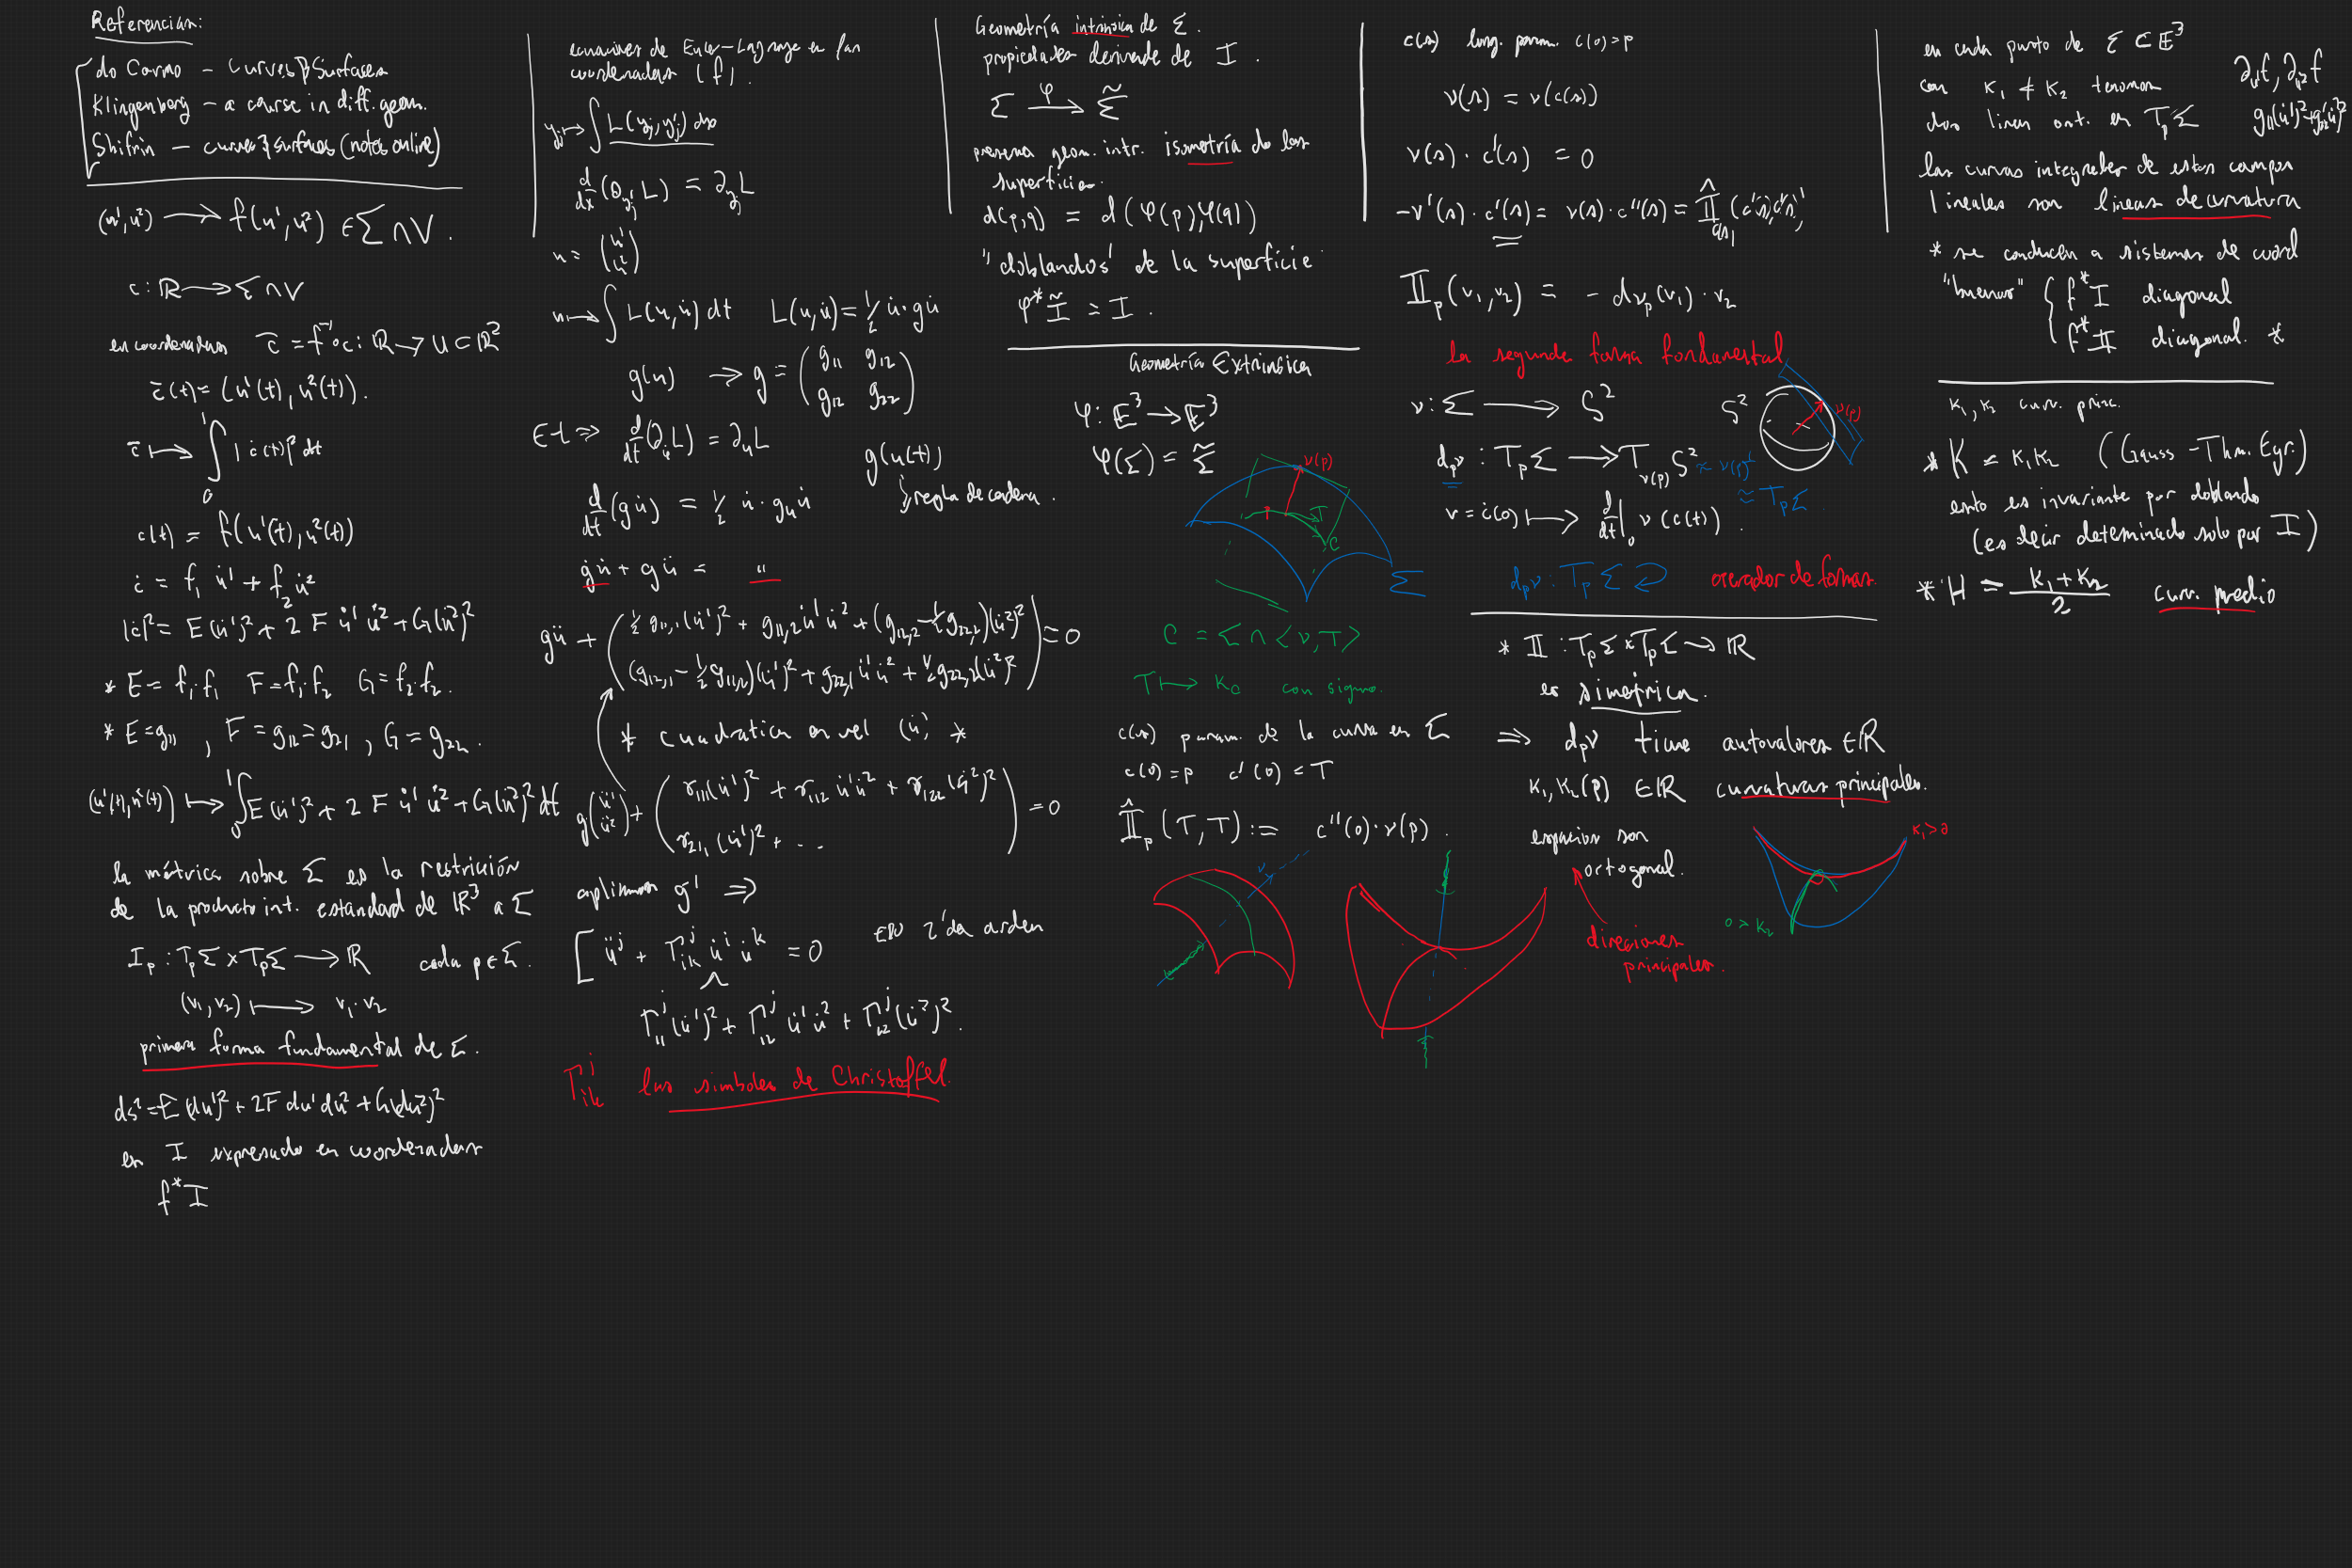 Referencias:
do Carmo – Curves & Surfaces
Klingenberg – a course in diff. geom.
Shifrin – curves & surfaces (notes online)
(u¹,u²) → f(u¹,u²) ∈ Σ ∩ V.
c: ℝ → Σ ∩ V
en coordenadas c̄ = f⁻¹∘c : ℝ → U ⊂ ℝ²
c̄(t) = (u¹(t), u²(t)).
c̄ ↦ ∫₀¹ |ċ(t)|² dt
c(t) = f(u¹(t), u²(t))
ċ = f₁ u̇¹ + f₂ u̇²
|ċ|² = E(u̇¹)² + 2 F u̇¹ u̇² + G(u̇²)²
* E = f₁·f₁ F = f₁·f₂ G = f₂·f₂.
* E = g₁₁ , F = g₁₂ = g₂₁ , G = g₂₂.
(u¹(t), u²(t)) ↦ ∫₀¹ E(u̇¹)² + 2 F u̇¹ u̇² + G(u̇²)² dt
la métrica sobre Σ es la restricción
de la producto int. estandard de ℝ³ a Σ
I_p : T_pΣ × T_pΣ → ℝ cada p ∈ Σ.
(v₁, v₂) ↦ v₁·v₂
primera forma fundamental de Σ.
ds² = E(du¹)² + 2F du¹du² + G(du²)²
es I expresado en coordenadas
f*I
ecuaciones de Euler–Lagrange en las
coordenadas (f).
y_j ↦ ∫ L(y_j, y'_j) dx
d/dx (∂_{y'_j} L) = ∂_{y_j} L
u = (u¹ u²)
u ↦ ∫ L(u, u̇) dt L(u, u̇) = ½ u̇·g u̇
g(u) → g = (g₁₁ g₁₂
g₁₂ g₂₂)
E-L ⇒ d/dt (∂_u̇ L) = ∂_u L
g(u(t))
d/dt (g u̇) = ½ u̇·g_u u̇
regla de cadena.
ġ u̇ + g ü = "
g ü + (½ g₁₁,₁(u̇¹)² + g₁₁,₂ u̇¹ u̇² + (g₁₂,₂ − ½ g₂₂,₁)(u̇²)²
(g₁₂,₁ − ½ g₁₁,₂)(u̇¹)² + g₂₂,₁ u̇¹ u̇² + ½ g₂₂,₂(u̇²)²) = 0
* cuadratica en vel (u̇) *
g(ü¹ ü²) + (γ₁₁₁(u̇¹)² + γ₁₁₂ u̇¹ u̇² + γ₁₂₂(u̇²)²
γ₂₁₁(u̇¹)² + ...) = 0
aplicamos g⁻¹ ⇒
[ü^j + Γ^j_{ik} u̇^i u̇^k = 0 EDO 2'da orden
Γ^j_{11}(u̇¹)² + Γ^j_{12} u̇¹ u̇² + Γ^j_{22}(u̇²)².
Γ^j_{ik} los simbolos de Christoffel.
Geometría intrinsica de Σ.
propiedades derivada de I.
Σ →φ Σ̃
preserva geom. intr. isometría de las
superficies.
d(p,q) = d(φ(p), φ(q))
"doblandos" de la superficie
φ*Ĩ = I.
Geometría Extrinsica
φ: 𝔼³ → 𝔼³
φ(Σ) = Σ̃
ν(p)
T
C
Σ
C = Σ ∩ <ν,T>
T ↦ κ₀ con signo.
c(s) param. de la curva en Σ
c(0) = p c'(0) = T
ÎI_p(T,T) := c''(0)·ν(p).
ν
c(s) long. param. c(0) = p
ν(s) = ν(c(s))
ν(s)·c'(s) = 0
−ν'(s)·c'(s) = ν(s)·c''(s) = ÎI_{c(s)}(c'(s), c'(s))
II_p(v₁, v₂) = − dν_p(v₁)·v₂
la segunda forma fondamental
ν: Σ → S²
S²
ν(p)
d_pν : T_pΣ → T_{ν(p)}S² ≈ ν(p)^⊥
≅ T_pΣ
v = ċ(0) ↦ d/dt|₀ ν(c(t)).
d_pν : T_pΣ ↩ operador de formas.
* II : T_pΣ × T_pΣ → ℝ
es simetrica.
⇒ d_pν tiene autovalores ∈ ℝ
κ₁, κ₂(p) ∈ ℝ curvaturas principales.
espacios son
ortogonal.
direciones
principales.
κ₁ > 0
0 > κ₂
en cada punto de Σ ⊂ 𝔼³
con κ₁ ≠ κ₂ tenemos
dos lineas ort. en T_pΣ
∂_{u¹}f, ∂_{u²}f
g₁₁(u̇¹)² + g₂₂(u̇²)²
las curvas integrales de estos campos
lineales son lineas de curvatura
* se conducen a sistemas de coord
"buenos" { f*I diagonal
f*II diagonal. *
κ₁, κ₂ curv. princ.
* K = κ₁κ₂ (Gauss – Thm. Egr.)
esto es invariante por doblando
(es decir determinado solo por I)
* H = (κ₁ + κ₂)/2 curv. medio